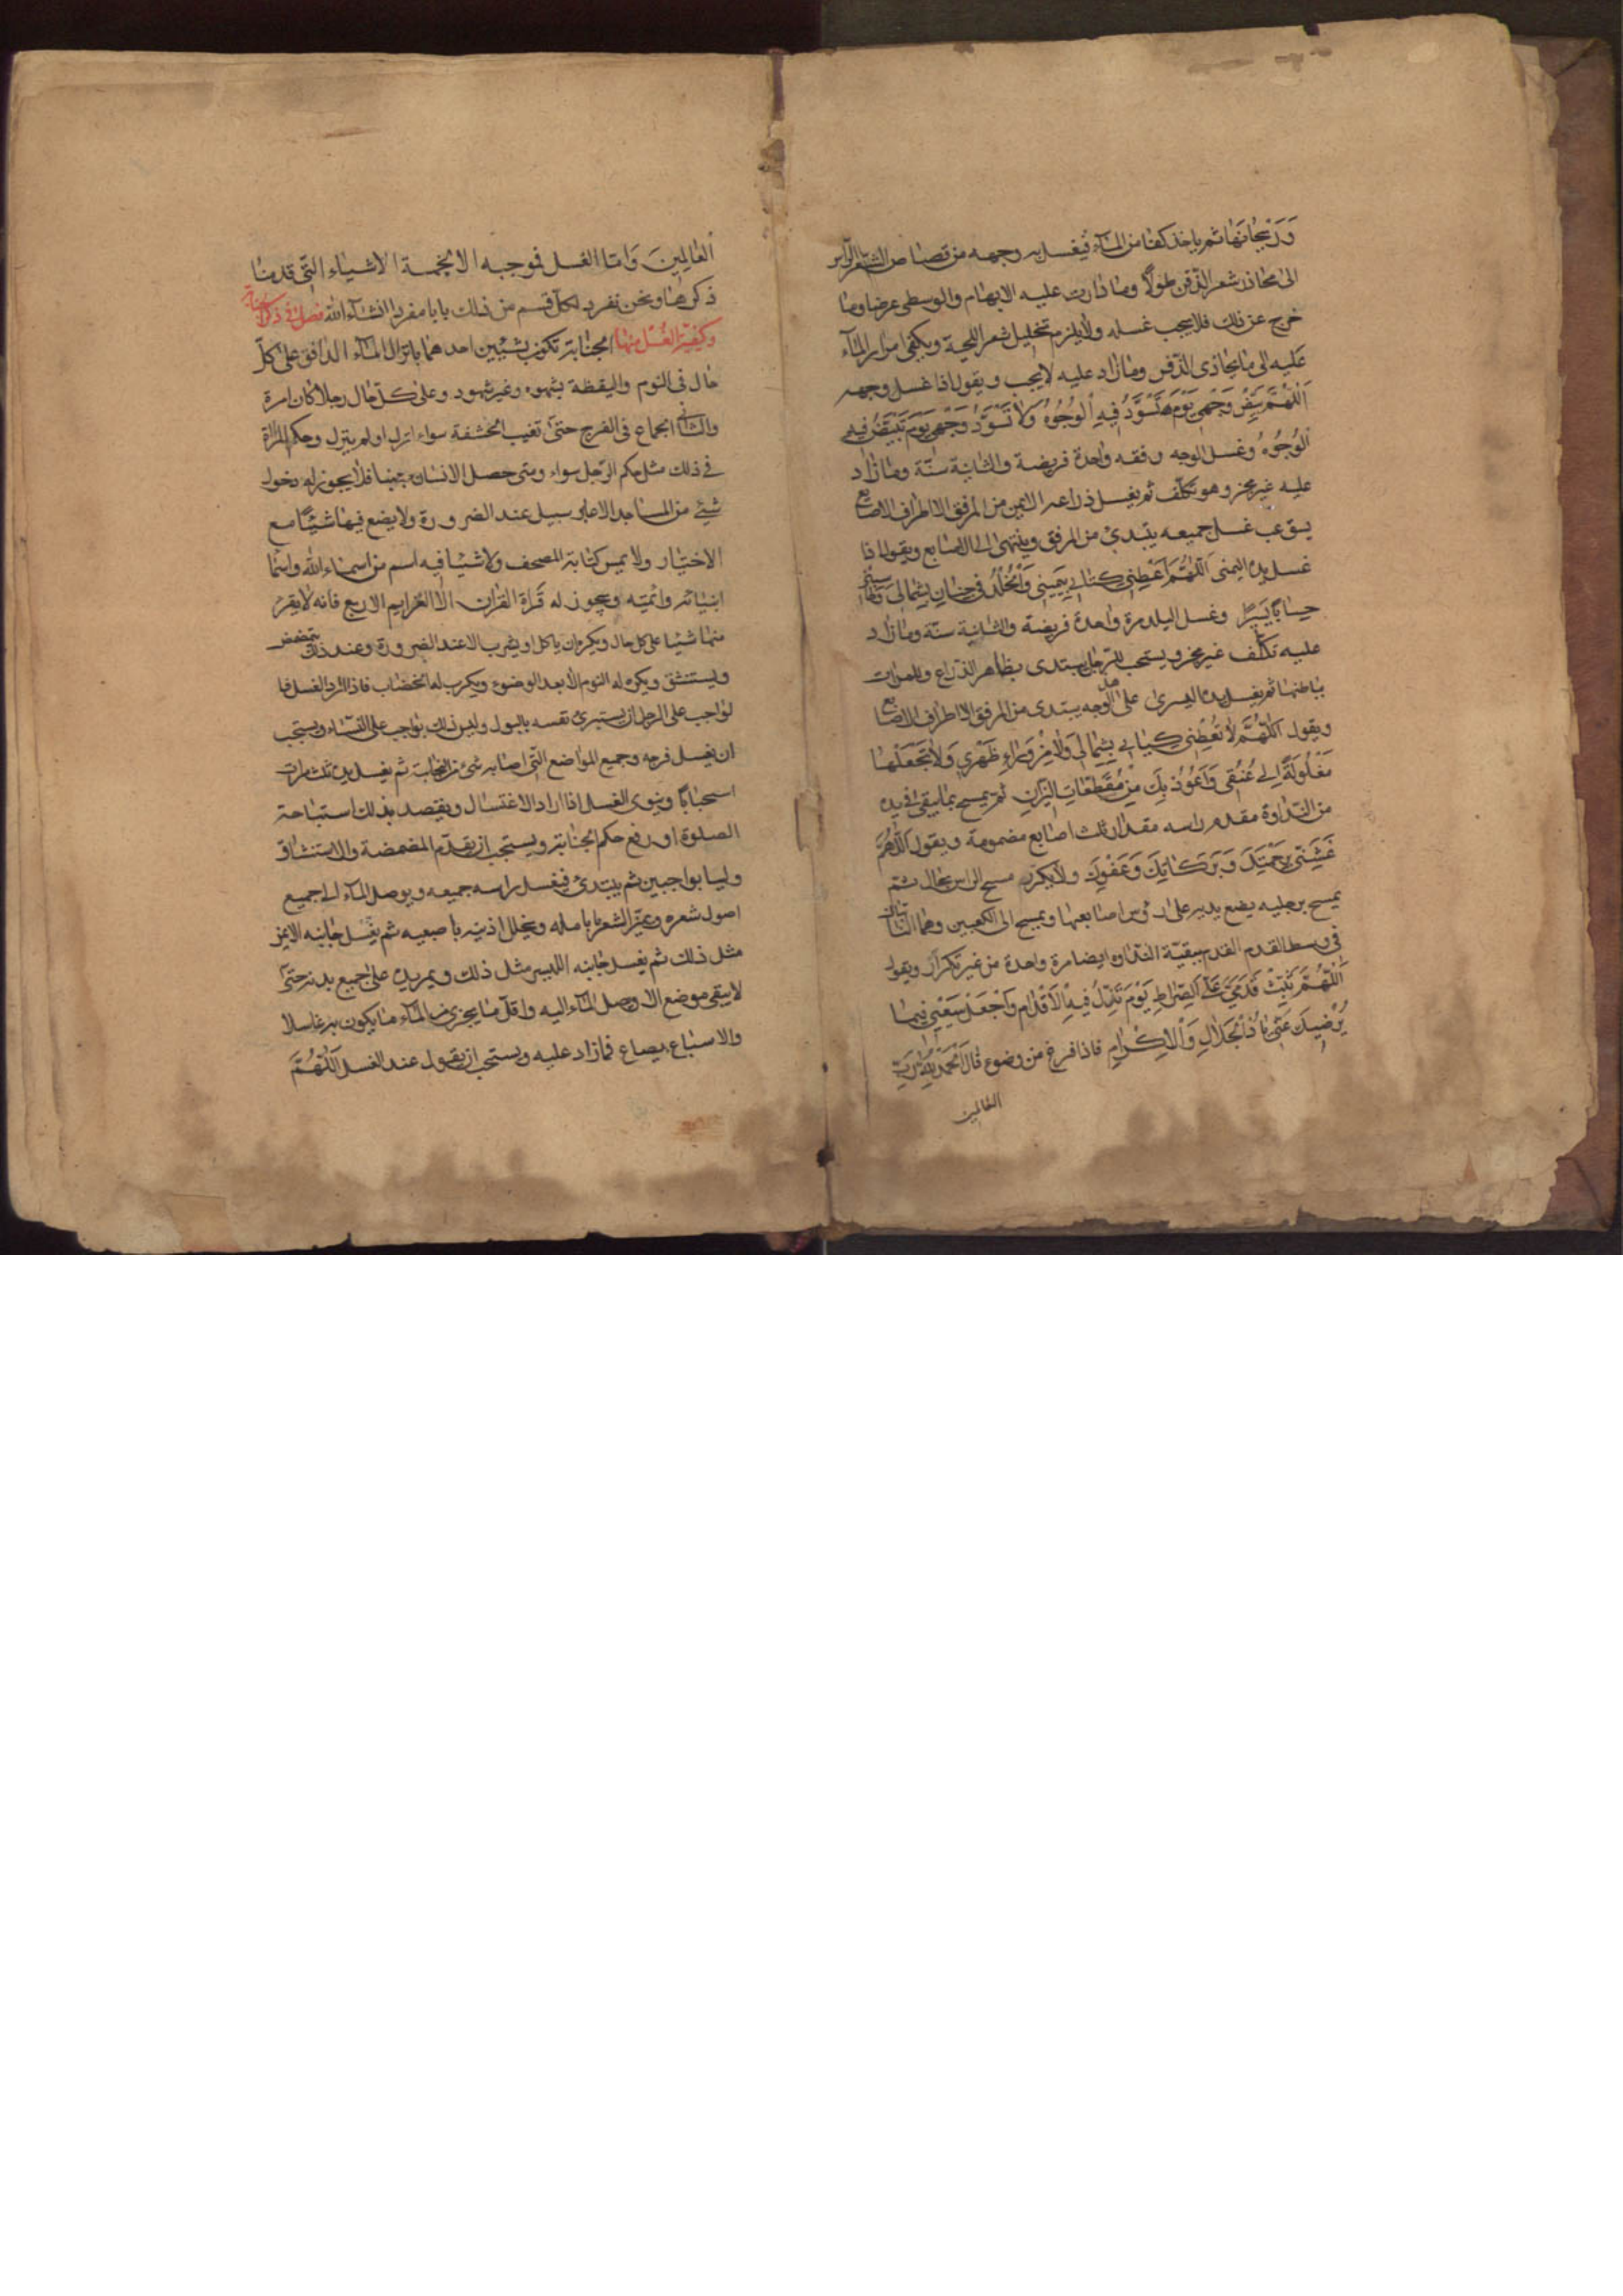 وَرَيْحَانَهَا ثم ياخذ كفا من المآء فيغسل به وجهه من قصاص الشعر الراس
الى محاذر شعر الذقن طولًا وما دارت عليه الابهام والوسطى عرضا وما
خرج عن ذلك فلا يجب غسله ولا يلزم تخليل شعر اللحية ويكفى امرار المآء
عليه الى ما يحاذى الذقن وما زاد عليه لا يجب ويقول اذا غسل وجهه
اَللّٰهُمَّ بَيِّضْ وَجْهِى يَوْمَ تَسْوَدُّ فِيهِ الْوُجُوهُ وَلَا تُسَوِّدْ وَجْهِى يَوْمَ تَبْيَضُّ فِيهِ
الْوُجُوهُ وغسل الوجه دفعه واحدة فريضة والثانية سنّة وما زاد
عليه غير مجز وهو تكلّف ثم يغسل ذراعه الايمن من المرفق الى اطراف الاصابع
يستوعب غسل جميعه يبتدئ من المرفق وينتهى الى الاصابع ويقول اذا
غسل يده اليمنى اَللّٰهُمَّ اَعْطِنِى كِتَابِى بِيَمِينِى وَالْخُلْدَ فِى جِنَانِ بِشِمَالِى وَحَاسِبْنِى
حِسَابًا يَسِيرًا وغسل اليد مرة واحدة فريضة والثانية سنّة وما زاد
عليه تكلّف غير مجز ويستحب للرجل يبتدى بظاهر الذراع وللمرات
بباطنها ثم يغسل يده اليسرى على هذا الوجه يبتدى من المرفق الى اطراف الاصابع
ويقول اَللّٰهُمَّ لَا تُعْطِنِى كِتَابِى بِشِمَالِى وَلَا مِنْ وَرَاءِ ظَهْرِى وَلَا تَجْعَلْهَا
مَغْلُولَةً اِلَى عُنُقِى وَاَعُوذُ بِكَ مِنْ مُقَطَّعَاتِ النِّيرَانِ ثم يمسح بما يبقى فى يده
من النداوة مقدم راسه مقدار ثلث اصابع مضمومة ويقول اَللّٰهُمَّ
غَشِّنِى بِرَحْمَتِكَ وَبَرَكَاتِكَ وَعَفْوِكَ ولا يكرر مسح الراس بحال ثم
يمسح برجليه يضع يديه على رؤس اصابعهما ويمسح الى الكعبين وهما الناتيان
فى وسط القدم القدم ببقيّة النداوه ايضا مرة واحدة من غير تكرار ويقول
اَللّٰهُمَّ ثَبِّتْ قَدَمَىَّ عَلَى الصِّرَاطِ يَوْمَ تَزِلُّ فِيهِ الْاَقْدَام وَاجْعَلْ سَعْيِى فِيمَا
يُرْضِيكَ عَنِّى يَا ذَا الْجَلَالِ وَالْاِكْرَامِ فاذا فرغ من وضوء قال اَلْحَمْدُ لِلّٰهِ رَبِّ
العالمين
اَلْعَالَمِينَ وَاما الغسل فموجبه الالخمسة الاشياء التى قدمنا
ذكرها ونحن نفرد لكل قسم من ذلك بابا مفردا انشآءالله فصل فى ذكر الجنابة
وكيفية الغسل منها الجنابة تكون بشيئين احدهما بانزال المآء الدافق على كلّ
حال فى النوم واليقظة بشهوه وغير شهوه وعلى كلّ حال رجلا كان امرة
والثانى الجماع فى الفرج حتى تغيب الحشفة سواء انزل او لم ينزل وحكم المراة
فى ذلك مثل حكم الرجل سواء ومتى حصل الانسان جنبا فلا يجوز له دخول
شئ من المساجد الا عابر سبيل عند الضرورة ولا يضع فيها شيئًا مع
الاختيار ولا يمس كتابة المصحف ولا شيئا فيه اسم من اسماء الله واسما
انبيائه وائمته ويجوز له قراة القرآن الا العزايم الاربع فانه لا يقرء
منها شيئا على كل حال ويكره ان ياكل او يشرب الا عند الضرورة وعند ذلك يتمضمض
ويستنشق ويكره له النوم الا بعد الوضوء ويكره له الخضاب فاذا اراد الغسل فا
لواجب على الرجل ان يستبرئ نفسه بالبول وليس ذلك بواجب على النسآء ويستحب
ان يغسل فرجه وجميع المواضع التى اصابه شئ من النجاسة ثم يغسل يده ثلث مرات
استحبابًا وينوى الغسل اذا اراد الاغتسال ويقصد بذلك استباحة
الصلوة او رفع حكم الجنابة ويستحب ان يقدّم المضمضة والاستنشاق
وليسا بواجبين ثم يبتدئ فيغسل راسه جميعه ويوصل المآء الى جميع
اصول شعره ويميّز الشعر بانامله ويخلل اذنيه باصبعيه ثم يغسل جانبه الايمن
مثل ذلك ثم يغسل جانبه الايسر مثل ذلك ويمر يده على جميع بدنه حتى
لا يبقى موضع الا وصل المآء اليه واقل ما يجزى من المآء ما يكون به غاسلا
والاسباغ بصاع فمازاد عليه ويستحب ان يقول عند الغسل اَللّٰهُمَّ